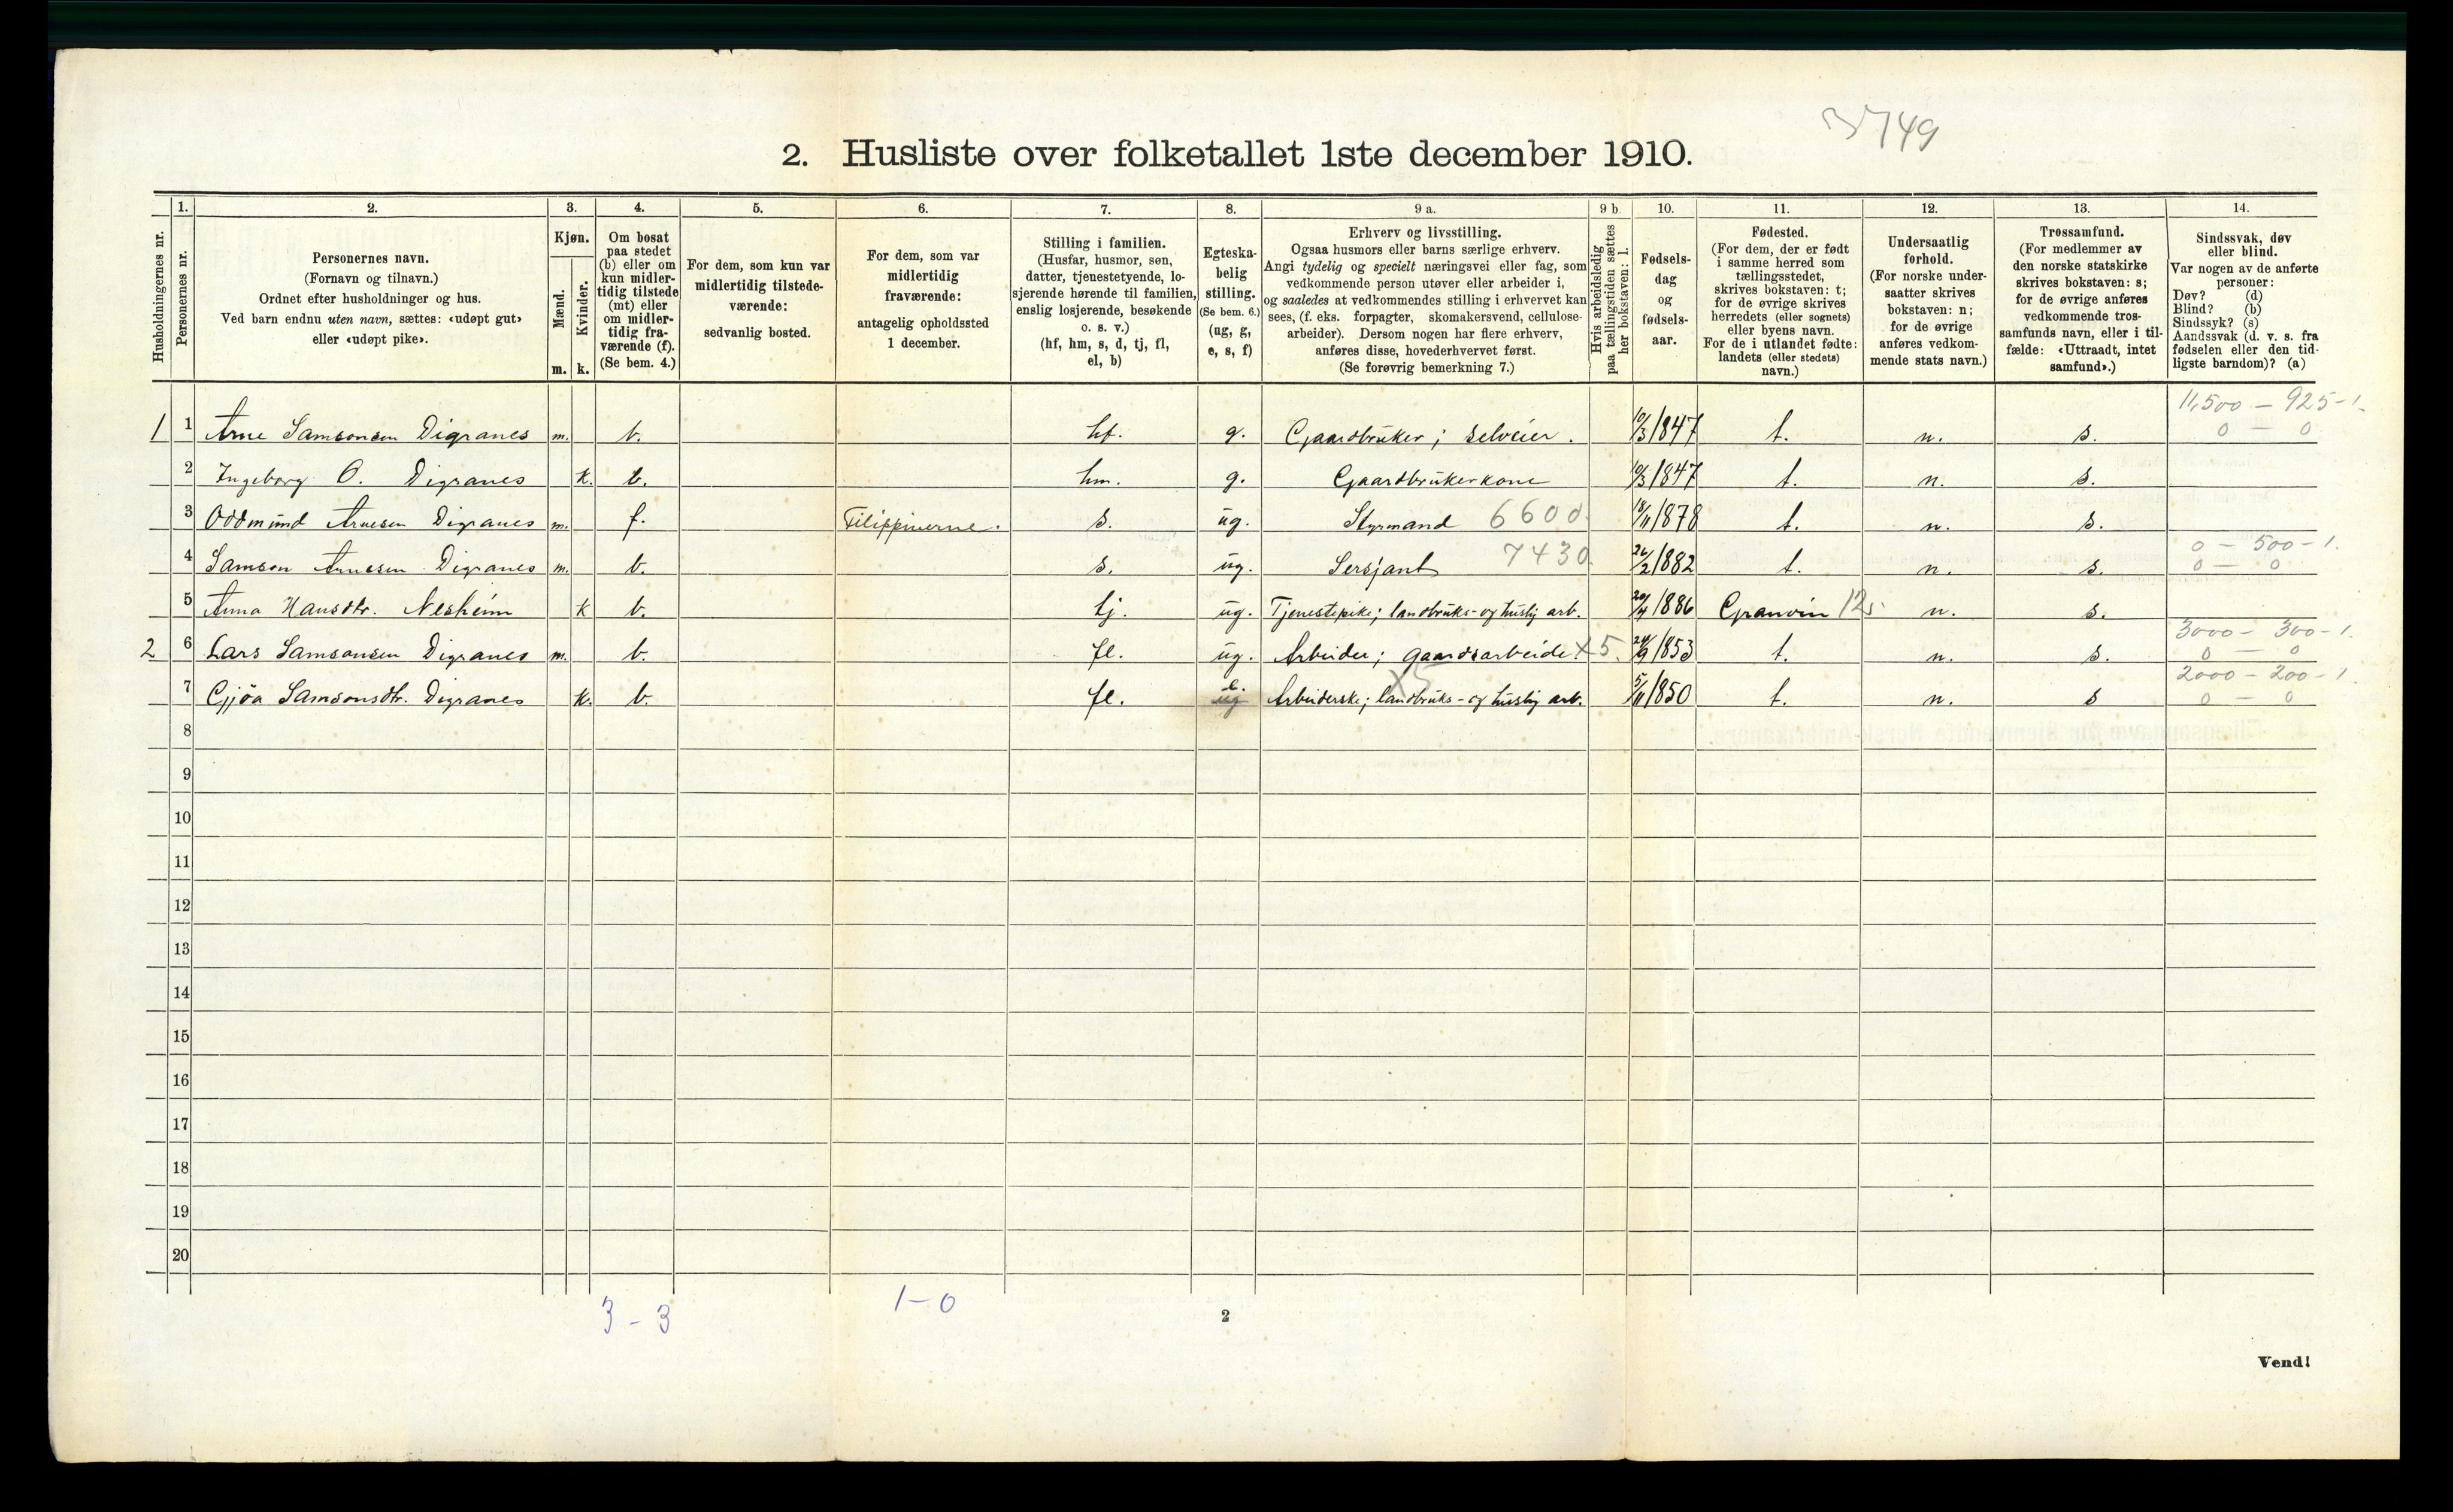 3749
2. Husliste over folketallet 1ste december 1910.
Husholdningernes nr.
1. Personernes nr.
2. Personernes navn.
(Fornavn og tilnavn.)
Ordnet efter husholdninger og hus.
Ved barn endnu uten navn, sættes: «udøpt gut»
eller «udøpt pike».
3. Kjøn.
Mænd. Kvinder.
m. k.
4. Om bosat
paa stedet
(b) eller om
kun midler-
tidig tilstede
(mt) eller
om midler-
tidig fra-
værende (f).
(Se bem. 4.)
5. For dem, som kun var
midlertidig tilstede-
værende:
sedvanlig bosted.
6. For dem, som var
midlertidig
fraværende:
antagelig opholdssted
1 december.
7. Stilling i familien.
(Husfar, husmor, søn,
datter, tjenestetyende, lo-
sjerende hørende til familien,
enslig losjerende, besøkende
o. s. v.)
(hf, hm, s, d, tj, fl,
el, b)
8. Egteska-
belig
stilling.
(Se bem. 6.)
(ug, g,
e, s, f)
9 a. Erhverv og livsstilling.
Ogsaa husmors eller barns særlige erhverv.
Angi tydelig og specielt næringsvei eller fag, som
vedkommende person utøver eller arbeider i,
og saaledes at vedkommendes stilling i erhvervet kan
sees, (f. eks. forpagter, skomakersvend, cellulose-
arbeider). Dersom nogen har flere erhverv,
anføres disse, hovederhvervet først.
(Se forøvrig bemerkning 7.)
9 b. Hvis arbeidsledig
paa tællingstiden sættes
her bokstaven: l.
10. Fødsels-
dag
og
fødsels-
aar.
11. Fødested.
(For dem, der er født
i samme herred som
tællingsstedet,
skrives bokstaven: t;
for de øvrige skrives
herredets (eller sognets)
eller byens navn.
For de i utlandet fødte:
landets (eller stedets)
navn.)
12. Undersaatlig
forhold.
(For norske under-
saatter skrives
bokstaven: n;
for de øvrige
anføres vedkom-
mende stats navn.)
13. Trossamfund.
(For medlemmer av
den norske statskirke
skrives bokstaven: s;
for de øvrige anføres
vedkommende tros-
samfunds navn, eller i til-
fælde: «Uttraadt, intet
samfund».)
14. Sindssvak, døv
eller blind.
Var nogen av de anførte
personer:
Døv? (d)
Blind? (b)
Sindssyk? (s)
Aandssvak (d. v. s. fra
fødselen eller den tid-
ligste barndom)? (a)
11,500 - 925 - 1.
1 1 Arne Samsonsen Digranes m. b. hf. g. Gaardbruker; selveier. 10/3 1847 t. n. s. 0 - 0
2 Ingeborg O. Digranes k. b. hm. g. Gaardbrukerkone 10/3 1847 t. n. s.
3 Oddmund Arnesen Digranes m. f. Filippinerne. s. ug. Styrmand 6600 18/11 1878 t. n. s.
0 - 500 - 1.
4 Samson Arnesen Digranes m. b. s. ug. Sersjant 7430 26/2 1882 t. n. s. 0 - 0
5 Anna Hansdtr. Nesheim k b. tj. ug. Tjenestepike; landbruks- og huslig arb. 20/4 1886 Granvin 12 n. s.
3000 - 300 - 1.
2 6 Lars Samsonsen Digranes m. b. fl. ug. Arbeider; gaardsarbeide. X5. 24/9 1853 t. n. s. 0 - 0
2000 - 200 - 1
7 Gjøa Samsonsdtr. Digranes k. b. fl. e. ug Arbeiderske; landbruks- og huslig arb. X5 5/11 1850 t. n. s 0 - 0
8
9
10
11
12
13
14
15
16
17
18
19
20
3 - 3
1 - 0
2
Vend!